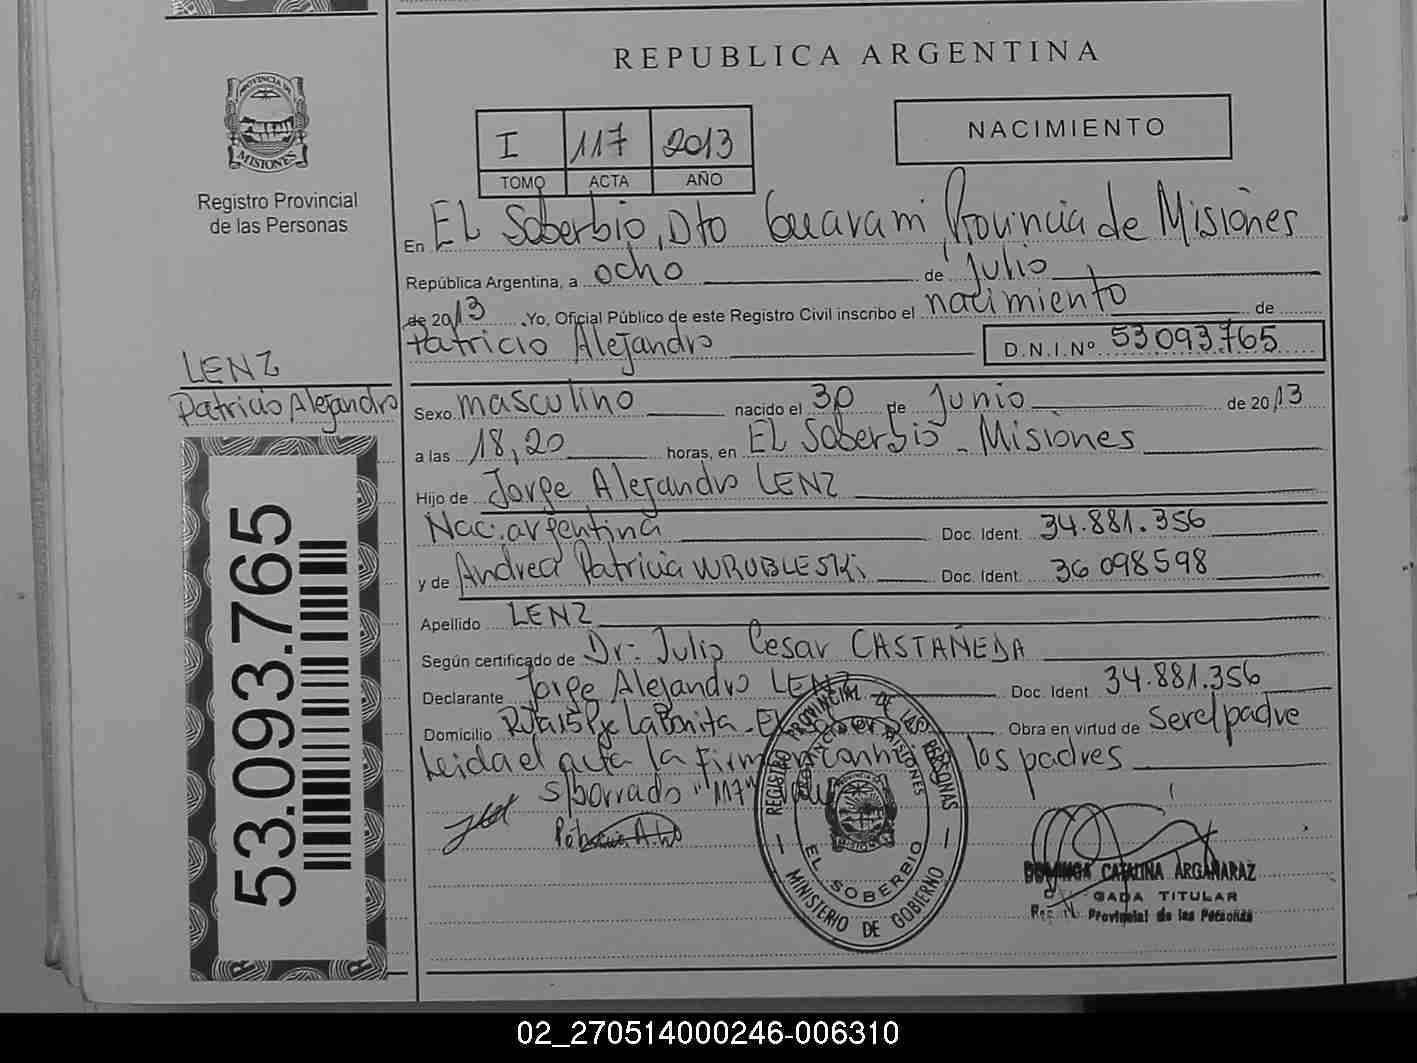 REPUBLICA ARGENTINA
PROVINCIA DE
MISIONES
Registro Provincial
de las Personas
I 117 2013
TOMO ACTA AÑO
NACIMIENTO
En EL Soberbio, Dto Guarani, Provincia de Misiones
República Argentina, a ocho de Julio
de 2013 .Yo, Oficial Público de este Registro Civil inscribo el nacimiento de
Patricio Alejandro D.N.I.Nº 53093765
LENZ
Patricio Alejandro
Sexo masculino nacido el 30 de Junio de 2013
a las 18,20 horas, en EL Soberbio - Misiones
Hijo de Jorge Alejandro LENZ
Nac: argentina Doc. Ident. 34.881.356
y de Andrea Patricia WRUBLESKi Doc. Ident. 36 098598
Apellido LENZ
Según certificado de Dr: Julio Cesar CASTAÑEDA
Declarante Jorge Alejandro LENZ Doc. Ident 34.881.356
Domicilio Ruta15 Pje La Bonita - El Obra en virtud de Serel padre
Leida el acta la Firman los padres
s/borrado "117"
53.093.765
REGISTRO PROVINCIAL DE LAS PERSONAS
PROVINCIA DE MISIONES
EL SOBERBIO
MINISTERIO DE GOBIERNO
CATALINA ARGAÑARAZ
TITULAR
Provincial de las Personas
02_270514000246-006310